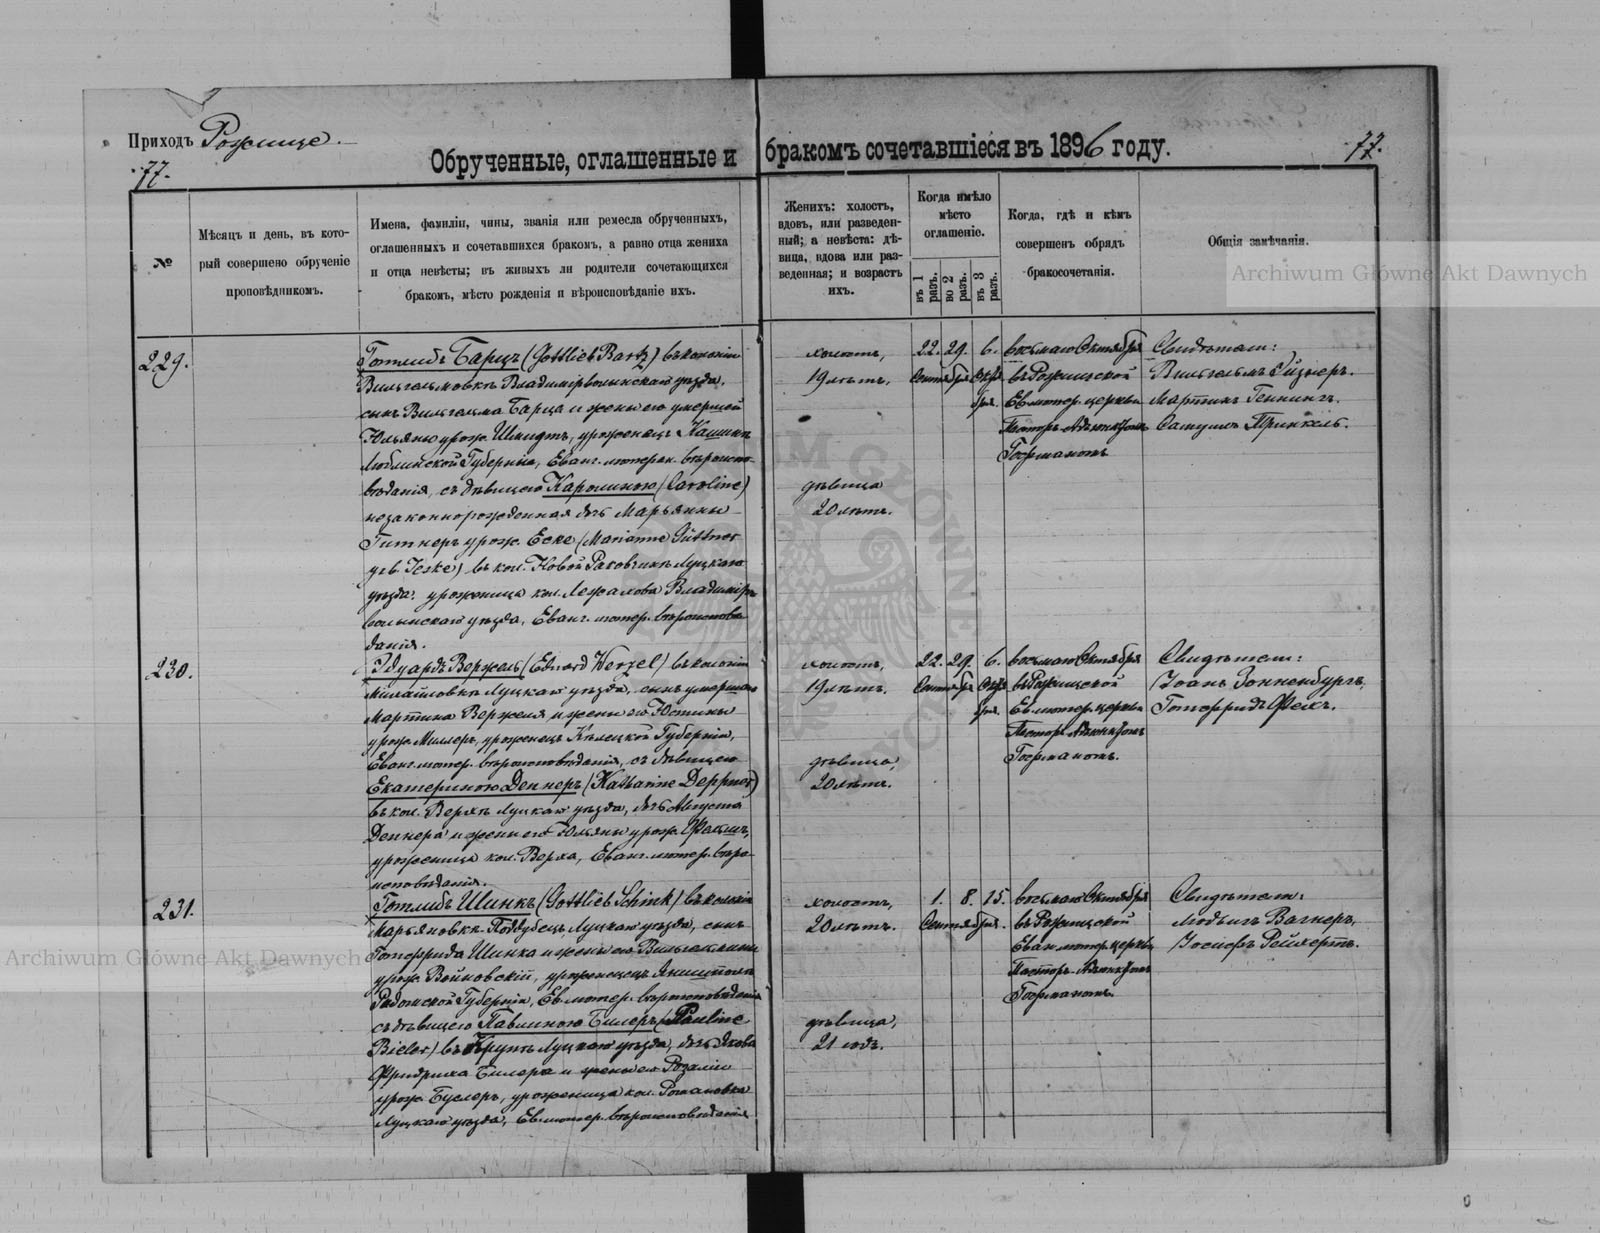 Приходъ Рожище.
77.
Обрученные, оглашенные и бракомъ сочетавшіеся въ 1896 году.
77.
№
Мѣсяцъ и день, въ кото-
рый совершено обрученіе
проповѣдникомъ.
Имена, фамиліи, чины, званія или ремесла обрученныхъ,
оглашенныхъ и сочетавшихся бракомъ, а равно отца жениха
и отца невѣсты; въ живыхъ ли родители сочетающихся
бракомъ, мѣсто рожденія и вѣроисповѣданіе ихъ.
Женихъ: холостъ,
вдовъ, или разведен-
ный; а невѣста: дѣ-
вица, вдова или раз-
веденная; и возрастъ
ихъ.
Когда имѣло
мѣсто
оглашеніе.
въ 1 разъ.
во 2 разъ.
въ 3 разъ.
Когда, гдѣ и кѣмъ
совершенъ обрядъ
бракосочетанія.
Общія замѣчанія.
229.
Готлибъ Барцъ (Gottlieb Bartz) въ колоніи
Вильгельмовкѣ Владимірволынскаго уѣзда,
сынъ Вильгельма Барца и жены его умершей
Юльяны урож. Шмидтъ, уроженецъ
Люблинской Губерніи, Еванг. лютеран. вѣроиспо-
вѣданія, съ дѣвицею Каролиною (Caroline)
незаконнорожденная дочь Марьянны
Гитнеръ урож. Еске (Marianne Güttner
geb. Jeske) въ кол. Новой Раковчинѣ Луцкаго
уѣзда, уроженица кол. Владимір-
волынскаго уѣзда, Еванг. лютер. вѣроисповѣ-
данія.
холостъ,
19 лѣтъ.
дѣвица
20 лѣтъ.
22. 29. 6.
Сентября Октя-
бря.
восьмаго Октября
въ Рожищской
Ев. лютер. церкви
Пасторъ-Адъюнктомъ
Гофманомъ
Свидѣтели:
Вильгельмъ
Мартинъ Геннингъ.
Самуилъ Тринкель.
230.
Эдуардъ Верзель (Eduard Werzel) въ колоніи
Михайловкѣ Луцкаго уѣзда, сынъ умершаго
Мартина Верзеля и жены его Юстины
урож. Миллеръ, уроженецъ Кѣлецкой Губерніи,
Еванг. лютер. вѣроисповѣданія, съ дѣвицею
Екатериною Деннеръ (Katharine)
въ кол. Верхѣ Луцкаго уѣзда, дочь Августа
Деннера и жены его Юльяны урож.
уроженица кол. Верха, Еванг. лютер. вѣро-
исповѣданія.
холостъ,
19 лѣтъ.
дѣвица,
20 лѣтъ.
22. 29. 6.
Сентября Октя-
бря.
восьмаго Октября
въ Рожищской
Ев. лютер. церкви
Пасторъ Адъюнктомъ
Гофманомъ.
Свидѣтели:
Іоанъ Зонненбургъ,
Готфридъ
231.
Готлибъ Шинкъ (Gottlieb Schink) въ колоніи
Марьяновкѣ Поддубецъ Луцкаго уѣзда, сынъ
Готфрида Шинка и жены его Вильгельмины
урож. Войновскій, уроженецъ
Радомской Губерніи, Ев. лютер. вѣроисповѣданія
съ дѣвицею Павлиною Билеръ (Pauline
Bieler) въ Крупѣ Луцкаго уѣзда, дочь Якова
Фридриха Билера и жены его Розаліи
урож. Буслеръ, уроженица кол. Романовка
Луцкаго уѣзда, Ев. лютер. вѣроисповѣданія
холостъ,
20 лѣтъ.
дѣвица,
21 годъ.
1. 8. 15.
Сентября.
восьмаго Октября
въ Рожищской
Еван. лютер. церкви
Пасторъ-Адъюнктомъ
Гофманомъ.
Свидѣтели:
Людвигъ Вагнеръ,
Іосифъ Рейхертъ.
Archiwum Główne Akt Dawnych
Archiwum Główne Akt Dawnych